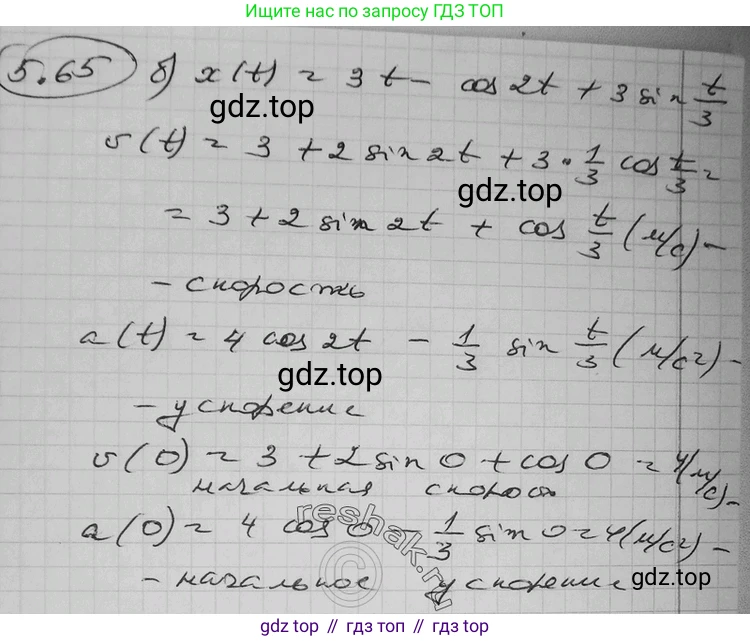 Ищите нас по запросу ГДЗ ТОП
5.65 б) x(t) = 3t - cos 2t + 3 sin t/3
gdz.top
v(t) = 3 + 2 sin 2t + 3 · 1/3 cos t/3 =
gdz.top
= 3 + 2 sin 2t + cos t/3 (м/с) -
- скорость
a(t) = 4 cos 2t - 1/3 sin t/3 (м/с2) -
gdz.top
- ускорение
v(0) = 3 + 2 sin 0 + cos 0 = 4 (м/с) -
начальная скорость
a(0) = 4 cos 0 - 1/3 sin 0 = 4 (м/с2) -
reshak.ru
©
- начальное ускорение
gdz.top
gdz.top // gdz.top // gdz.top